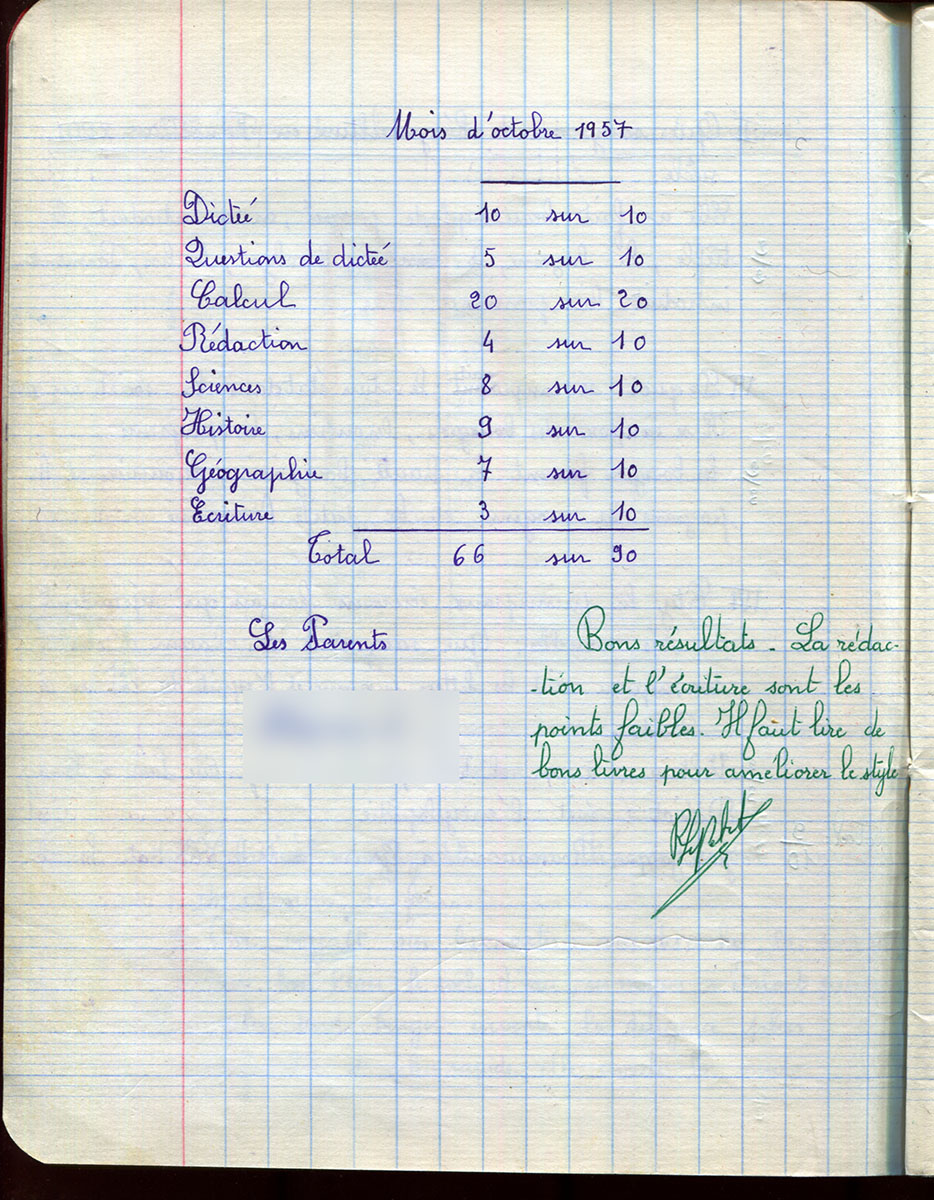 Mois d'octobre 1957
Dictée 10 sur 10
Questions de dictée 5 sur 10
Calcul 20 sur 20
Rédaction 4 sur 10
Sciences 8 sur 10
Histoire 9 sur 10
Géographie 7 sur 10
Ecriture 3 sur 10
Total 66 sur 90
Les Parents
Bons résultats - La rédac-
-tion et l'écriture sont les
points faibles. Il faut lire de
bons livres pour améliorer le style